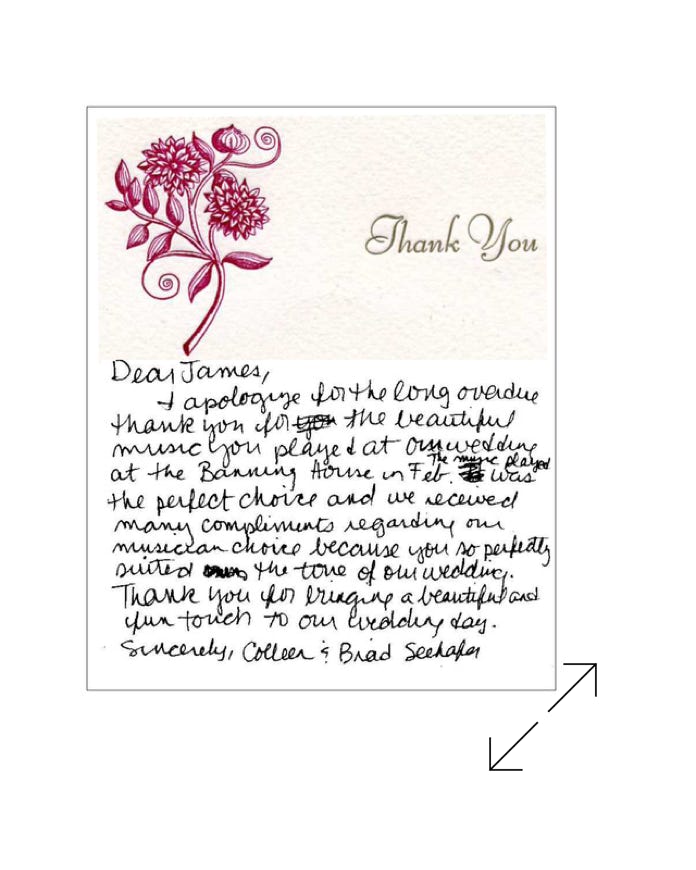 Thank You
Dear James,
I apologize for the long overdue
thank you for the beautiful
music you played at our wedding
at the Banning House in Feb. The music played was
the perfect choice and we received
many compliments regarding our
musician choice because you so perfectly
suited the tone of our wedding.
Thank you for bringing a beautiful and
fun touch to our wedding day.
Sincerely, Colleen & Brad